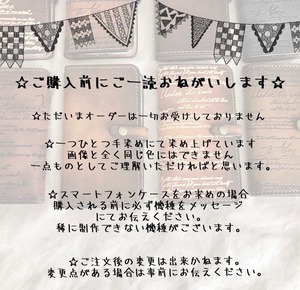 ☆ご購入前にご一読おねがいします☆
☆ただいまオーダーは一切お受けしておりません
☆一つひとつ手染めにて染め上げています
画像と全く同じ色にはできません
一点ものとしてご理解いただければと思います。
☆スマートフォンケースをお求めの場合
購入される前に必ず機種をメッセージ
にてお伝えください。
稀に制作できない機種がございます。
☆ご注文後の変更は出来かねます。
変更点がある場合は事前にお伝えください。